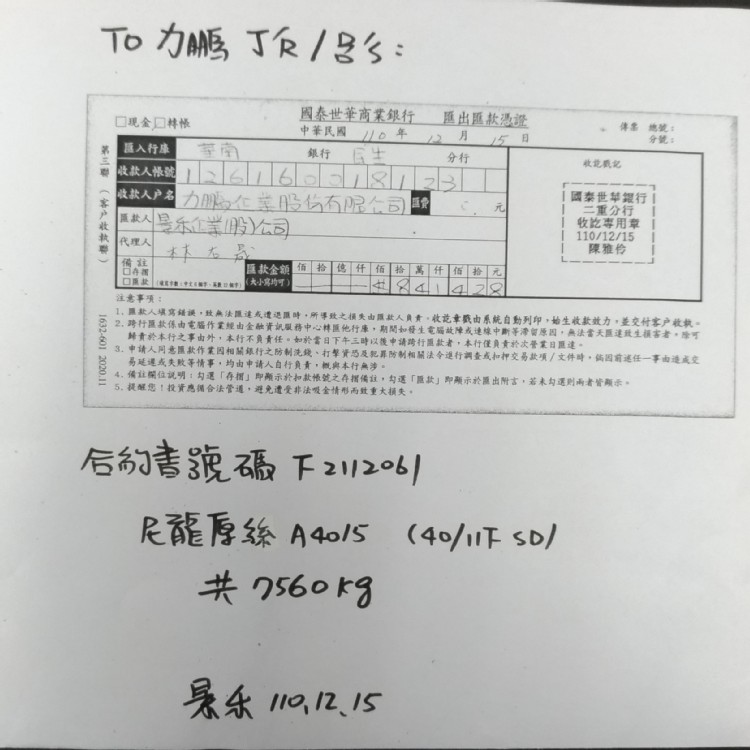 TO 力鵬 JR/呂's:
國泰世華商業銀行 匯出匯款憑證
□現金□轉帳
中華民國 110 年 12 月 15 日
傳票 總號:
分號:
第三聯(客戶收執聯)
匯入行庫 華南 銀行 民生 分行
收訖戳記
收款人帳號 126160018123
收款人戶名 力鵬企業股份有限公司 匯費 元
匯款人 景禾企業(股)公司
代理人 林
國泰世華銀行
二重分行
收訖專用章
110/12/15
陳雅伶
備註
□存摺
□匯款
匯款金額
(大小寫均可)
佰 拾 億 仟 佰 拾 萬 仟 佰 拾 元
¥ 8 4 1 4 2 8
注意事項:
1. 匯款人填寫錯誤,致無法匯達或遭退匯時,所導致之損失由匯款人負責。收訖章戳由系統自動列印,始生收款效力,並交付客戶收執。
2. 跨行匯款係由電腦作業經由金融資訊服務中心轉匯他行庫,期間如發生電腦故障或連線中斷等滯留原因,無法當天匯達致生損害者,除可
歸責於本行之事由外,本行不負責任。如於當日下午三時以後申請跨行匯款者,本行僅負責於次營業日匯達。
3. 申請人同意匯款作業因相關銀行之防制洗錢、打擊資恐及犯罪防制相關法令進行調查或扣押交易款項/文件時,倘因前述任一事由造成交
易延遲或失敗等情事,均由申請人自行負責,概與本行無涉。
4. 備註欄位說明:勾選「存摺」即顯示於扣款帳號之存摺備註,勾選「匯款」即顯示於匯出附言,若未勾選則兩者皆顯示。
5. 提醒您!投資應循合法管道,避免遭受非法吸金情形而致重大損失。
1632-601 2020.11
合約書號碼 F2112061
尼龍原絲 A4015 (40/11F SD)
共 7560kg
景禾 110.12.15